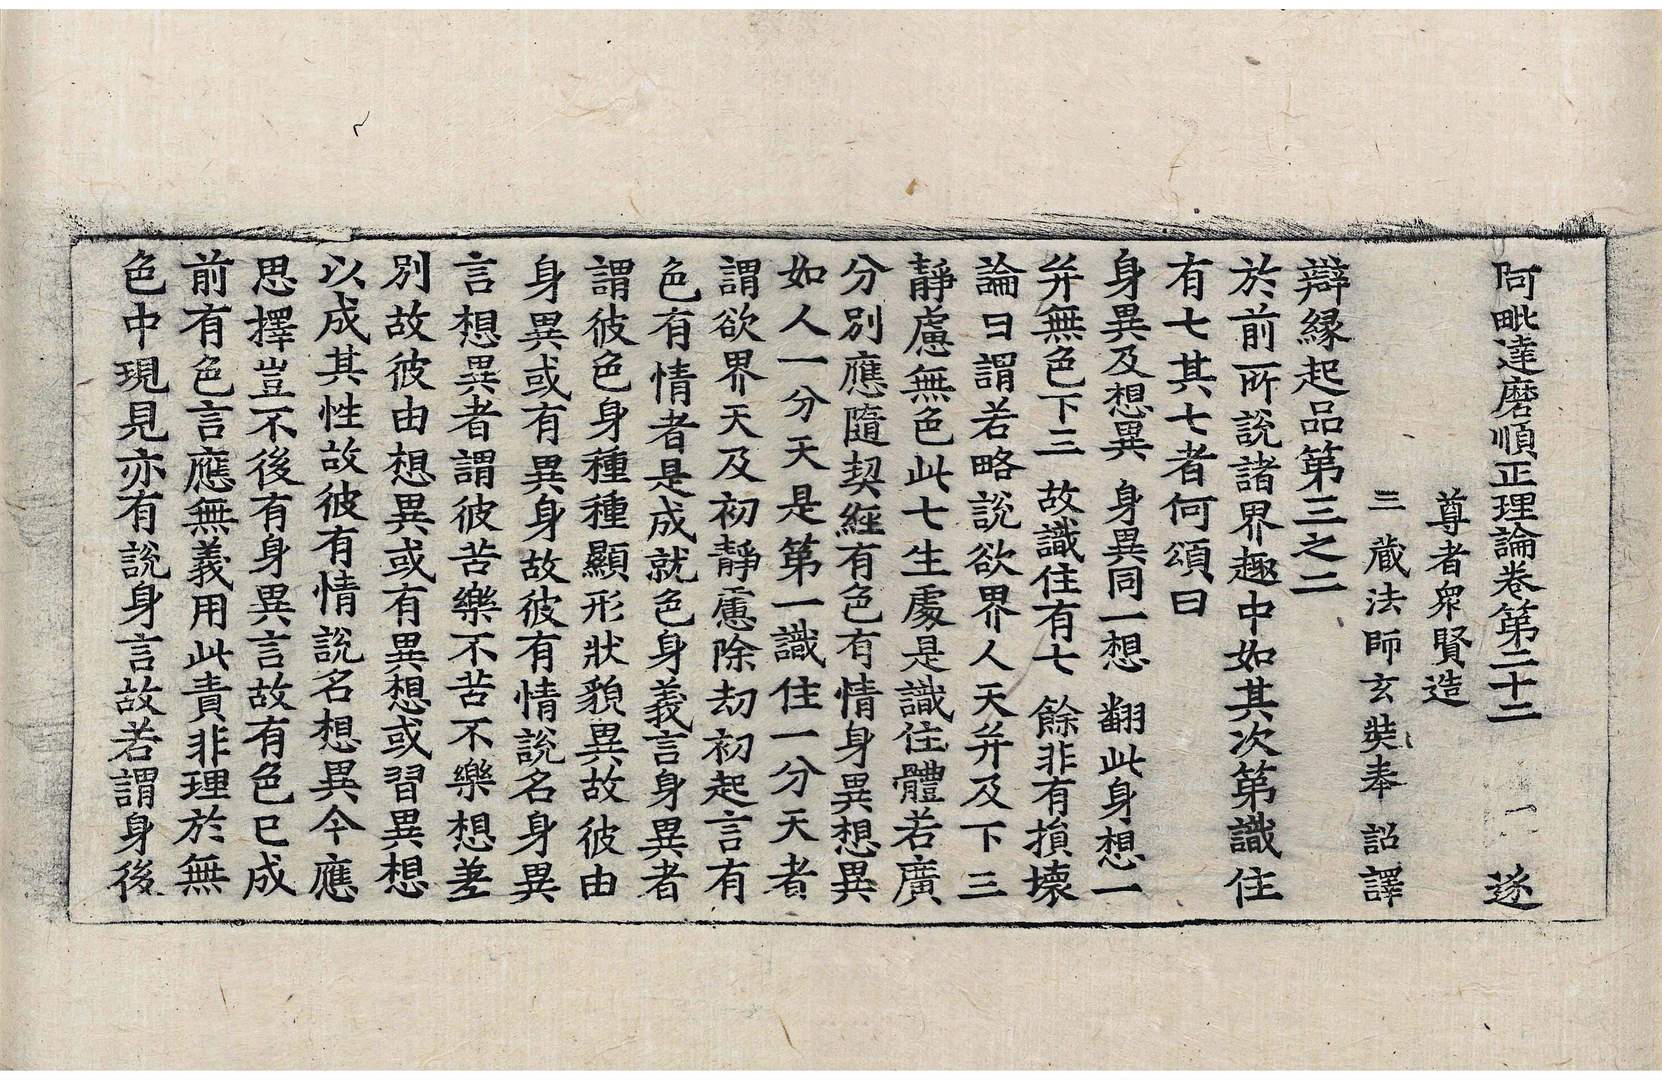 阿毗達磨順正理論卷第二十二 一 逐
尊者衆賢造
三藏法師玄奘奉 詔譯
辯緣起品第三之二
於前所說諸界趣中如其次第識住
有七其七者何頌曰
身異及想異 身異同一想 翻此身想一
并無色下三 故識住有七 餘非有損壞
論曰謂若略說欲界人天并及下三
靜慮無色此七生處是識住體若廣
分別應隨契經有色有情身異想異
如人一分天是第一識住一分天者
謂欲界天及初靜慮除劫初起言有
色有情者是成就色身義言身異者
謂彼色身種種顯形狀貌異故彼由
身異或有異身故彼有情說名身異
言想異者謂彼苦樂不苦不樂想差
別故彼由想異或有異想或習異想
以成其性故彼有情說名想異今應
思擇豈不後有身異言故有色已成
前有色言應無義用此責非理於無
色中現見亦有說身言故若謂身後